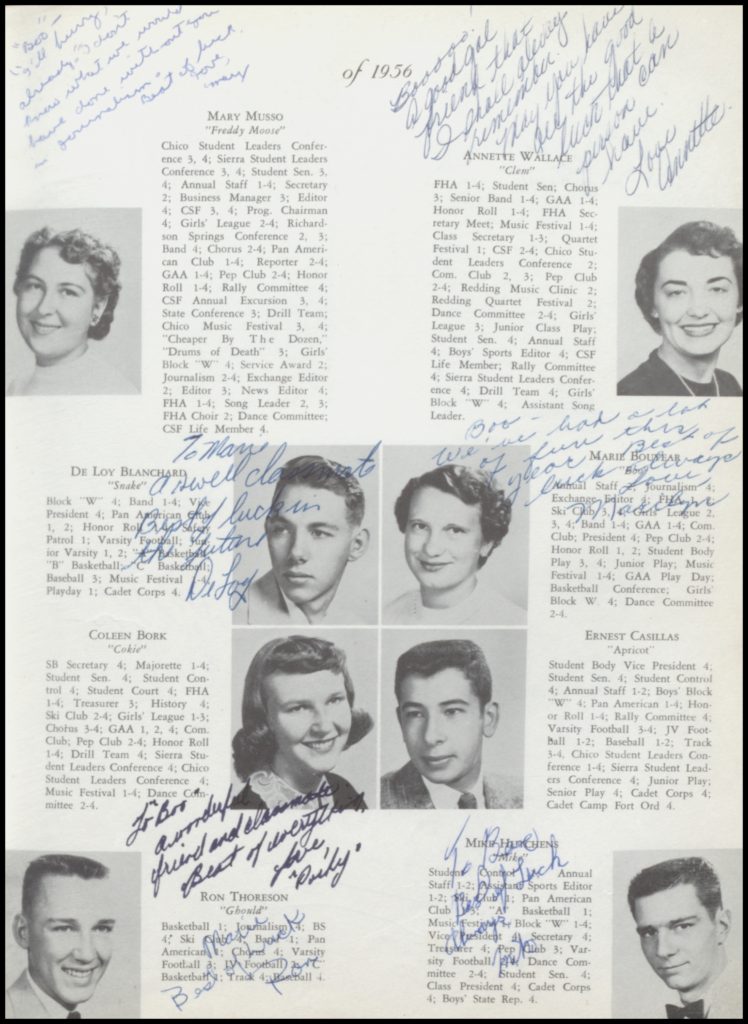 "Boo" -
I'll hurry,
already "I don't
know what we would
have done without you
in journalism" +
Best of luck.
Love,
Mary
of 1956
Booooo!
A good gal
friend that
I shall always
remember.
May you have
all the good
luck that a
person can
have.
Love
Annette.
MARY MUSSO
"Freddy Moose"
Chico Student Leaders Confer-
ence 3, 4; Sierra Student Leaders
Conference 3, 4; Student Sen. 3,
4; Annual Staff 1-4; Secretary
2; Business Manager 3; Editor
4; CSF 3, 4; Prog. Chairman
4; Girls' League 2-4; Richard-
son Springs Conference 2, 3;
Band 4; Chorus 2-4; Pan Ameri-
can Club 1-4; Reporter 2-4;
GAA 1-4; Pep Club 2-4; Honor
Roll 1-4; Rally Committee 4;
CSF Annual Excursion 3, 4;
State Conference 3; Drill Team;
Chico Music Festival 3, 4;
"Cheaper By The Dozen,"
"Drums of Death" 3; Girls'
Block "W" 4; Service Award 2;
Journalism 2-4; Exchange Editor
2; Editor 3; News Editor 4;
FHA 1-4; Song Leader 2, 3;
FHA Choir 2; Dance Committee;
CSF Life Member 4.
ANNETTE WALLACE
"Clem"
FHA 1-4; Student Sen; Chorus
3; Senior Band 1-4; GAA 1-4;
Honor Roll 1-4; FHA Sec-
retary Meet; Music Festival 1-4;
Class Secretary 1-3; Quartet
Festival 1; CSF 2-4; Chico Stu-
dent Leaders Conference 2;
Com. Club 2, 3; Pep Club
2-4; Redding Music Clinic 2;
Redding Quartet Festival 2;
Dance Committee 2-4; Girls'
League 3; Junior Class Play;
Student Sen. 4; Annual Staff
4; Boys' Sports Editor 4; CSF
Life Member; Rally Committee
4; Sierra Student Leaders Confer-
ence 4; Drill Team 4; Girls'
Block "W" 4; Assistant Song
Leader.
To Marie
A swell classmate
Best of luck in
the future
DeLoy
DE LOY BLANCHARD
"Snake"
Block "W" 4; Band 1-4; Vice
President 4; Pan American Club
1, 2; Honor Roll 4; Safety
Patrol 1; Varsity Football; Jun-
ior Varsity 1, 2; "A" Basketball;
"B" Basketball; "C" Basketball;
Baseball 3; Music Festival 1-4;
Playday 1; Cadet Corps 4.
Boo -
We've had a lot
of fun this
year. Best of
luck always
Love
MARIE BOUYEAR
"Boo"
Annual Staff 2; Journalism 4;
Exchange Editor 4; FHA 1;
Ski Club 3; Girls' League 2,
3, 4; Band 1-4; GAA 1-4; Com.
Club; President 4; Pep Club 2-4;
Honor Roll 1, 2; Student Body
Play 3, 4; Junior Play; Music
Festival 1-4; GAA Play Day;
Basketball Conference; Girls'
Block W 4; Dance Committee
2-4.
COLEEN BORK
"Cokie"
SB Secretary 4; Majorette 1-4;
Student Sen. 4; Student Con-
trol 4; Student Court 4; FHA
1-4; Treasurer 3; History 4;
Ski Club 2-4; Girls' League 1-3;
Chorus 3-4; GAA 1, 2, 4; Com.
Club; Pep Club 2-4; Honor Roll
1-4; Drill Team 4; Sierra Stu-
dent Leaders Conference 4; Chico
Student Leaders Conference 4;
Music Festival 1-4; Dance Com-
mittee 2-4.
ERNEST CASILLAS
"Apricot"
Student Body Vice President 4;
Student Sen. 4; Student Control
4; Annual Staff 1-2; Boys' Block
"W" 4; Pan American 1-4; Hon-
or Roll 1-4; Rally Committee 4;
Varsity Football 3-4; JV Foot-
ball 1-2; Baseball 1-2; Track
3-4; Chico Student Leaders Con-
ference 1-4; Sierra Student Lead-
ers Conference 4; Junior Play;
Senior Play 4; Cadet Corps 4;
Cadet Camp Fort Ord 4.
To "Boo"
A wonderful
friend and classmate
Best of everything
Love,
RON THORESON
"Ghould"
Basketball 1; Journalism 4; BS
4; Ski Club 4; Band 1; Pan
American 1; Chorus 4; Varsity
Football 3; JV Football 2; "C"
Basketball 1; Track 4; Baseball 4.
Marie
Best of Luck
Ron
To Boo
Best of Luck
Always
Mike
MIKE HUTCHENS
"Mike"
Student Control Annual
Staff 1-2; Assistant Sports Editor
1-2; Ski Club 1; Pan American
Club 3; "A" Basketball 1;
Music Festival Block "W" 1-4;
Vice President Secretary 4;
Treasurer 4; Pep Club 3; Var-
sity Football Dance Com-
mittee 2-4; Student Sen. 4;
Class President 4; Cadet Corps
4; Boys' State Rep. 4.